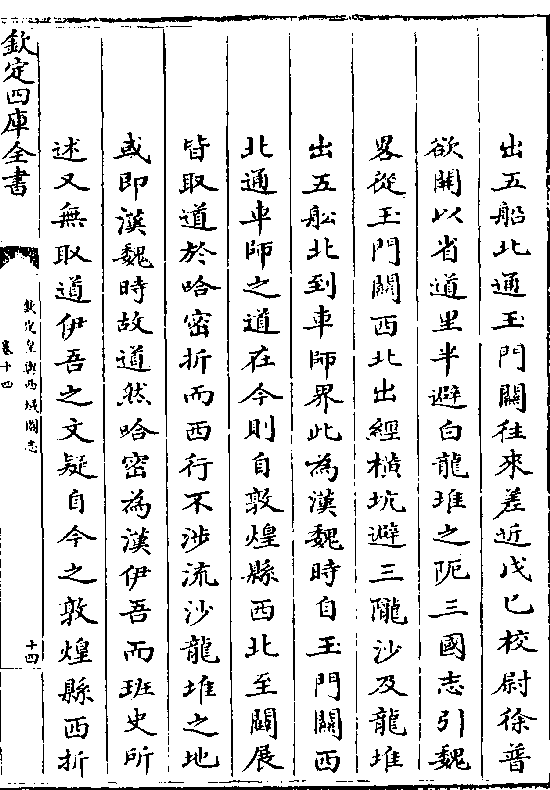 出五船北通玉門關往來差近戊已校尉徐普
欲開以省道里半避白龍堆之阨三國志引魏
畧從玉門關西北出經橫坑避三隴沙及龍堆
出五船北到車師界此為漢魏時自玉門關西
北通車師之道在今則自敦煌縣西北至闢展
皆取道於哈密折而西行不涉流沙龍堆之地
或即漢魏時故道然哈密為漢伊吾而班史所
述又無取道伊吾之文疑自今之敦煌縣西折
欽定四庫全書
欽定皇輿西域圖志
卷十四
十四